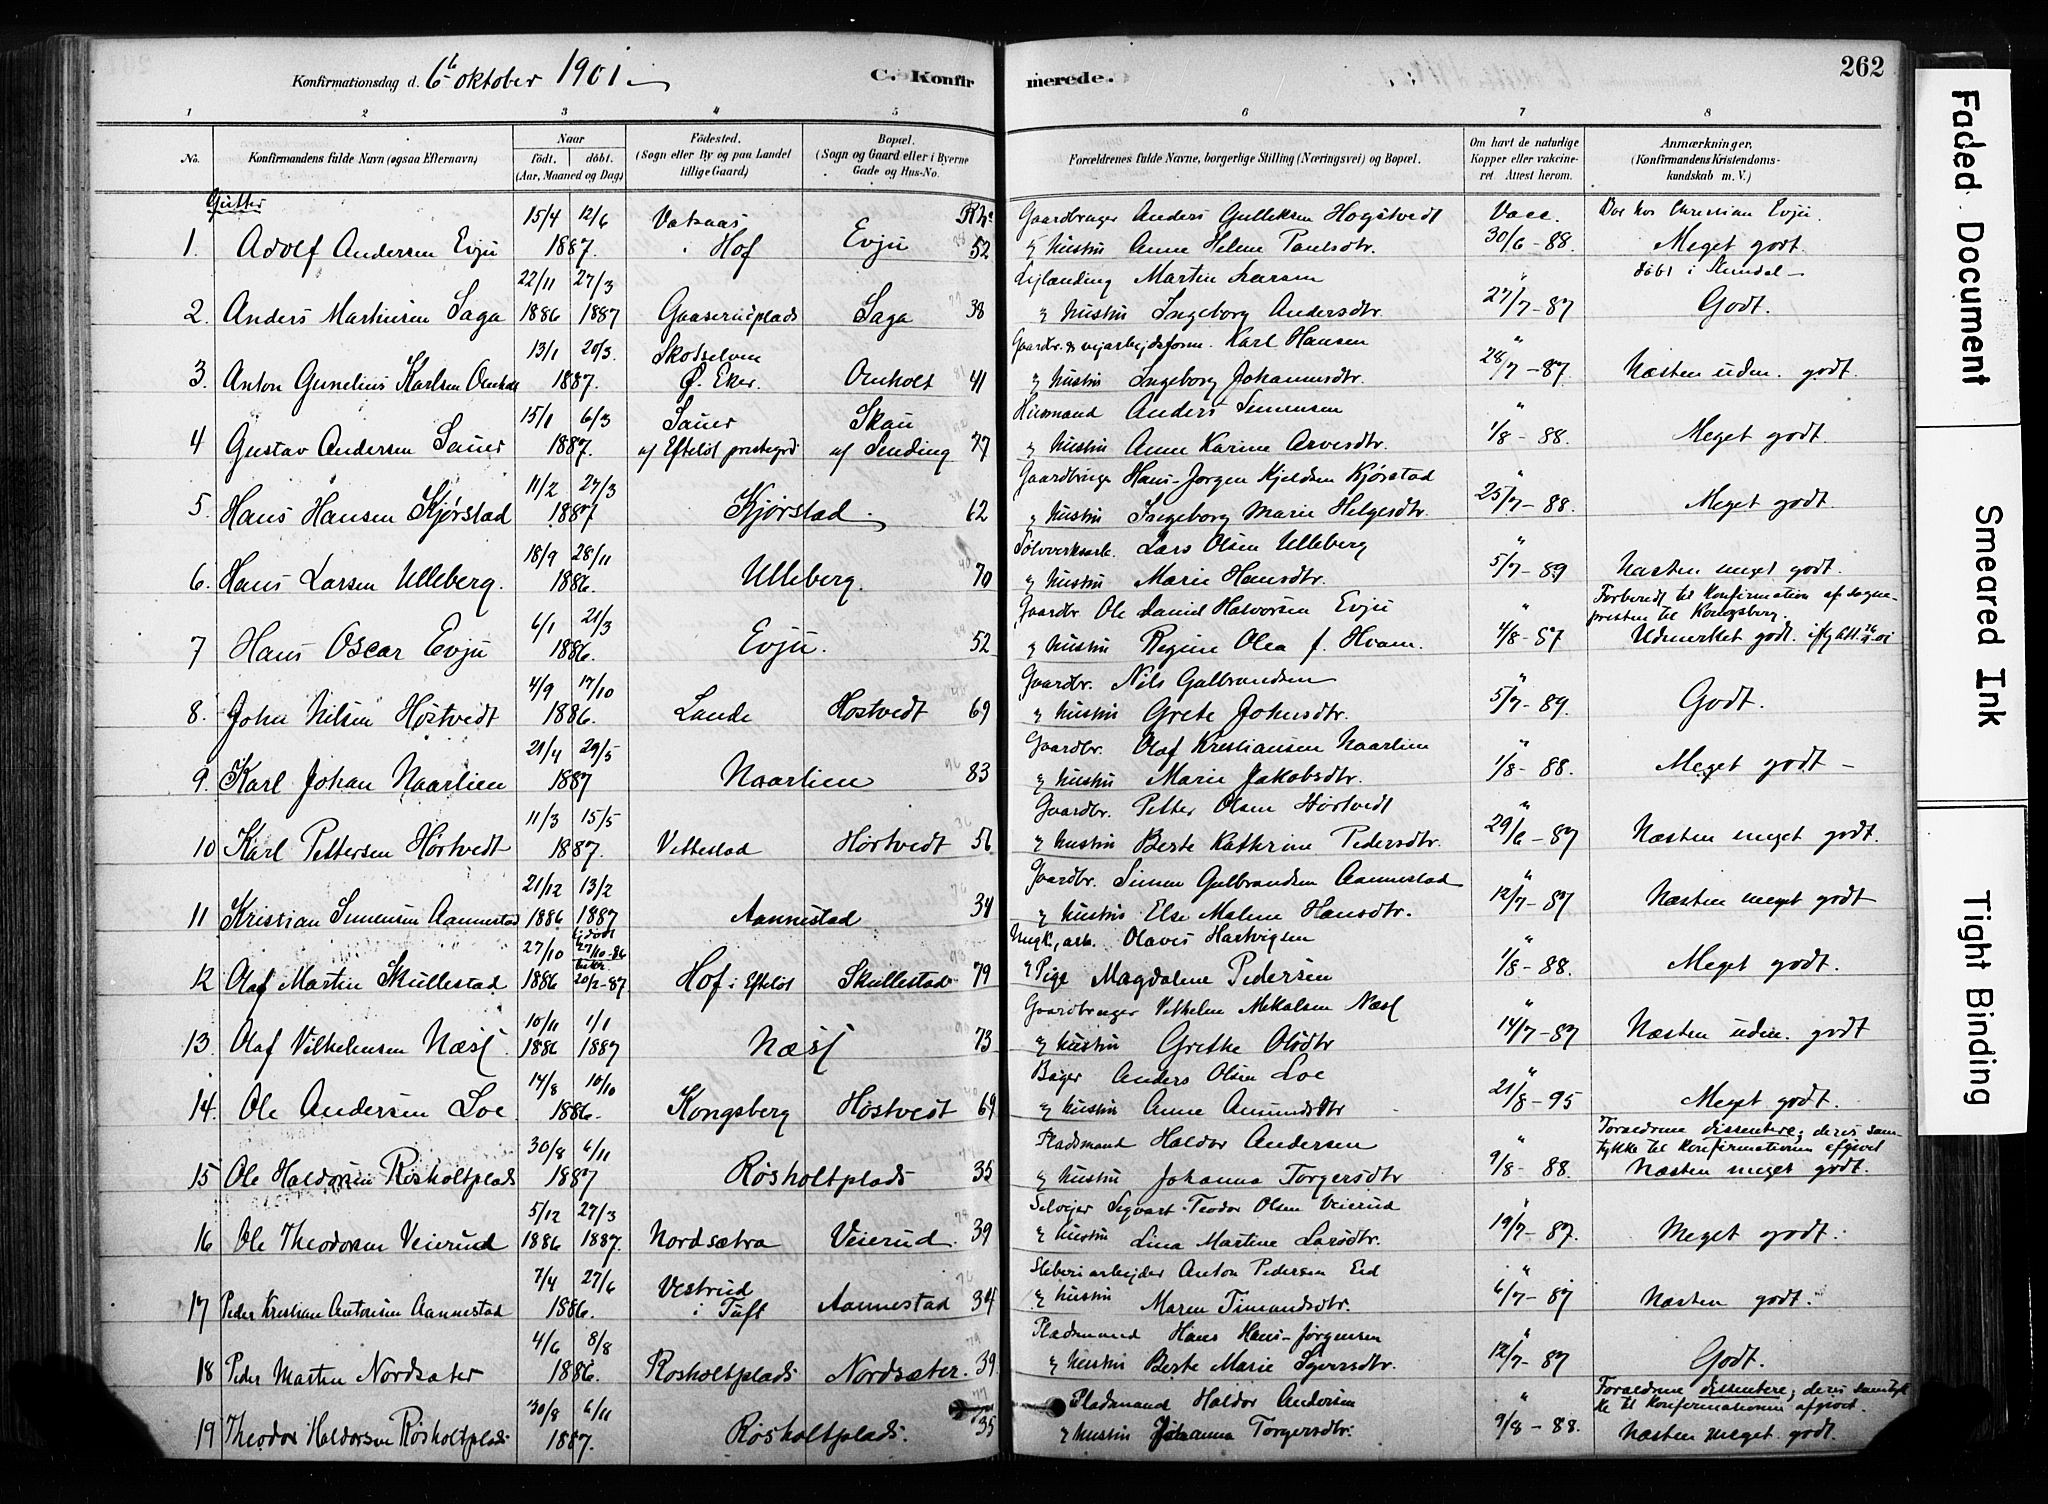 Konfirmationsdag d. 6te oktober 1901.
C. Konfirmerede.
262
1 2 3 4 5 6 7 8
No.
Konfirmandens fulde Navn (ogsaa Efternavn)
Naar født. døbt. (Aar, Maaned og Dag)
Fødested. (Sogn eller By og paa Landet tillige Gaard)
Bopæl. (Sogn og Gaard eller i Byerne Gade og Hus-No.
Forældrenes fulde Navne, borgerlige Stilling (Næringsvei) og Bopæl.
Om havt de naturlige Kopper eller vakcineret. Attest herom.
Anmærkninger, (Konfirmandens Kristendomskundskab m. V.)
Gutter
15/4 12/6 Vatnaas Gaardbruger Anders Gulliksen Hogstvedt Vacc. Bor hos Christian Evju.
1. Adolf Andersen Evju 1887. i Hof Evju 52 & hustru Anne Helene Paulsdtr. 30/6 - 88. Meget godt.
22/11 27/3 Leilænding Martin Larsen " døbt i Skundal
2. Anders Martinsen Saga 1886 1887 Gaaserudplads Saga 38 & hustru Ingeborg Andersdtr. 27/7 - 87 Godt.
13/1 20/3. Skotselven Gaardbr. & veiarbeidsform. Karl Hansen "
3. Anton Gunelius Karlsen Omholt 1887. Ø. Eker. Omholt 41 & hustru Ingeborg Johannesdtr. 28/7 - 87. Næsten uden. godt.
15/1 6/3 Sauer Skau Husmand Anders Simensen "
4 Gustav Andersen Sauer 1887. af Efteløt prestegrd af Sending 77 & hustru Anne Karine Arvesdtr. 1/8 - 88. Meget godt.
11/2 27/3 Gaardbruger Hans-Jørgen Kjeldsen Kjørstad "
5. Hans Hansen Kjørstad 1887 Kjørstad. 62 & hustru Ingeborg Marie Helgesdtr. 25/7 - 88. Meget godt.
18/9 28/11 Sølvverksarb. Lars Olsen Ulleberg "
6. Hans Larsen Ulleberg. 1886. Ulleberg. 70 & hustru Marie Hansdtr. 5/7 - 89 Næsten meget godt.
6/1 21/3 Gaardbr. Ole Daniel Halvorsen Evju " Forberedt til Konfirmation af sognepresten til Kongsberg.
7 Hans Oscar Evju 1886. Evju. 52 & hustru Regine Olea f. Hvam. 4/8 - 87 Udmerket godt.
4/9 17/10 Gaardbr. Nils Gulbrandsen "
8. John Nilsen Høstvedt 1886. Lande Høstvedt 69 & hustru Grete Johnsdtr. 5/7 - 89. Godt.
21/4 29/5 Gaardbr. Olaf Kristiansen Naarlien "
9. Karl Johan Naarlien 1887 Naarlien 83 & hustru Marie Jakobsdtr. 1/8 - 88. Meget godt
11/3 15/5 Gaardbr. Petter Olsen Hørtvedt "
10 Karl Pettersen Hørtvedt 1887. Vettestad Hørtvedt 56 & hustru Berte Kathrine Pedersdtr. 29/6 - 87 Næsten meget godt.
21/12 13/2 Gaardbr. Simen Gulbrandsen Aannestad "
11 Kristian Simensen Aannestad 1886 1887 Aannestad 34 & hustru Else Malene Hansdtr. 12/7 - 87 Næsten meget godt
27/10 hj.døbt 27/10-86 Ungk., arb. Olaves Hartvigsen "
12 Olaf Martin Skullestad 1886 bekr. 20/2-87 Hof i Efteløt Skullestad 79 & Pige Magdalene Pedersen 1/8 - 88. Meget godt.
10/11 1/1 Gaardbruger Vilhelm Mikalsen Næss "
13. Olaf Vilhelmsen Næss. 1886 1887 Næss 73 & hustru Grethe Olsdtr 14/7 - 87 Næsten uden. godt
14/8 10/10 Bager Anders Olsen Loe "
14. Ole Andersen Loe. 1886. Kongsberg Høstvedt 69 & hustru Anne Amundsdtr 21/8 - 95 Meget godt.
30/8 6/11 Pladsmand Haldor Andersen " Forældrene dissentere; deres samtykke til Konfirmationen afgivet
15 Ole Haldorsen Røsholtplads 1887 Røsholtplads 35 & hustru Johanna Torgersdtr 9/8 - 88. Næsten meget godt.
5/12 27/3 Selveier Segvart-Teodor Olsen Veierud "
16 Ole Theodorsen Veierud 1886 1887. Nordsætra Veierud. 39 & hustru Lina Martine Larsdtr. 19/7 - 87. Meget godt.
7/4 27/6 Vestrud Sliberiarbeider Anton Pedersen Eid "
17 Peder Kristian Antonsen Aannestad 1886. i Tuft Aannestad 34 & hustru Maren Timandsdtr. 6/7 - 87 Næsten godt.
4/6 8/8 Pladsmand Hans Hans-Jørgensen "
18 Peder Martin Nordsæter 1886. Røsholtplads Nordsæter. 39. & hustru Berte Marie Syversdtr. 12/7 - 87 Godt.
30/8 6/11 Pladsmand Haldor Andersen " Forældrene dissentere; deres samtykke til Konfirmationen afgivet.
19 Theodor Haldorsen Røsholtplads 1887. Røsholtplads. 35 & hustru Johanna Torgersdtr. 9/8 - 88. Næsten meget godt.
Faded Document
Smeared Ink
Tight Binding